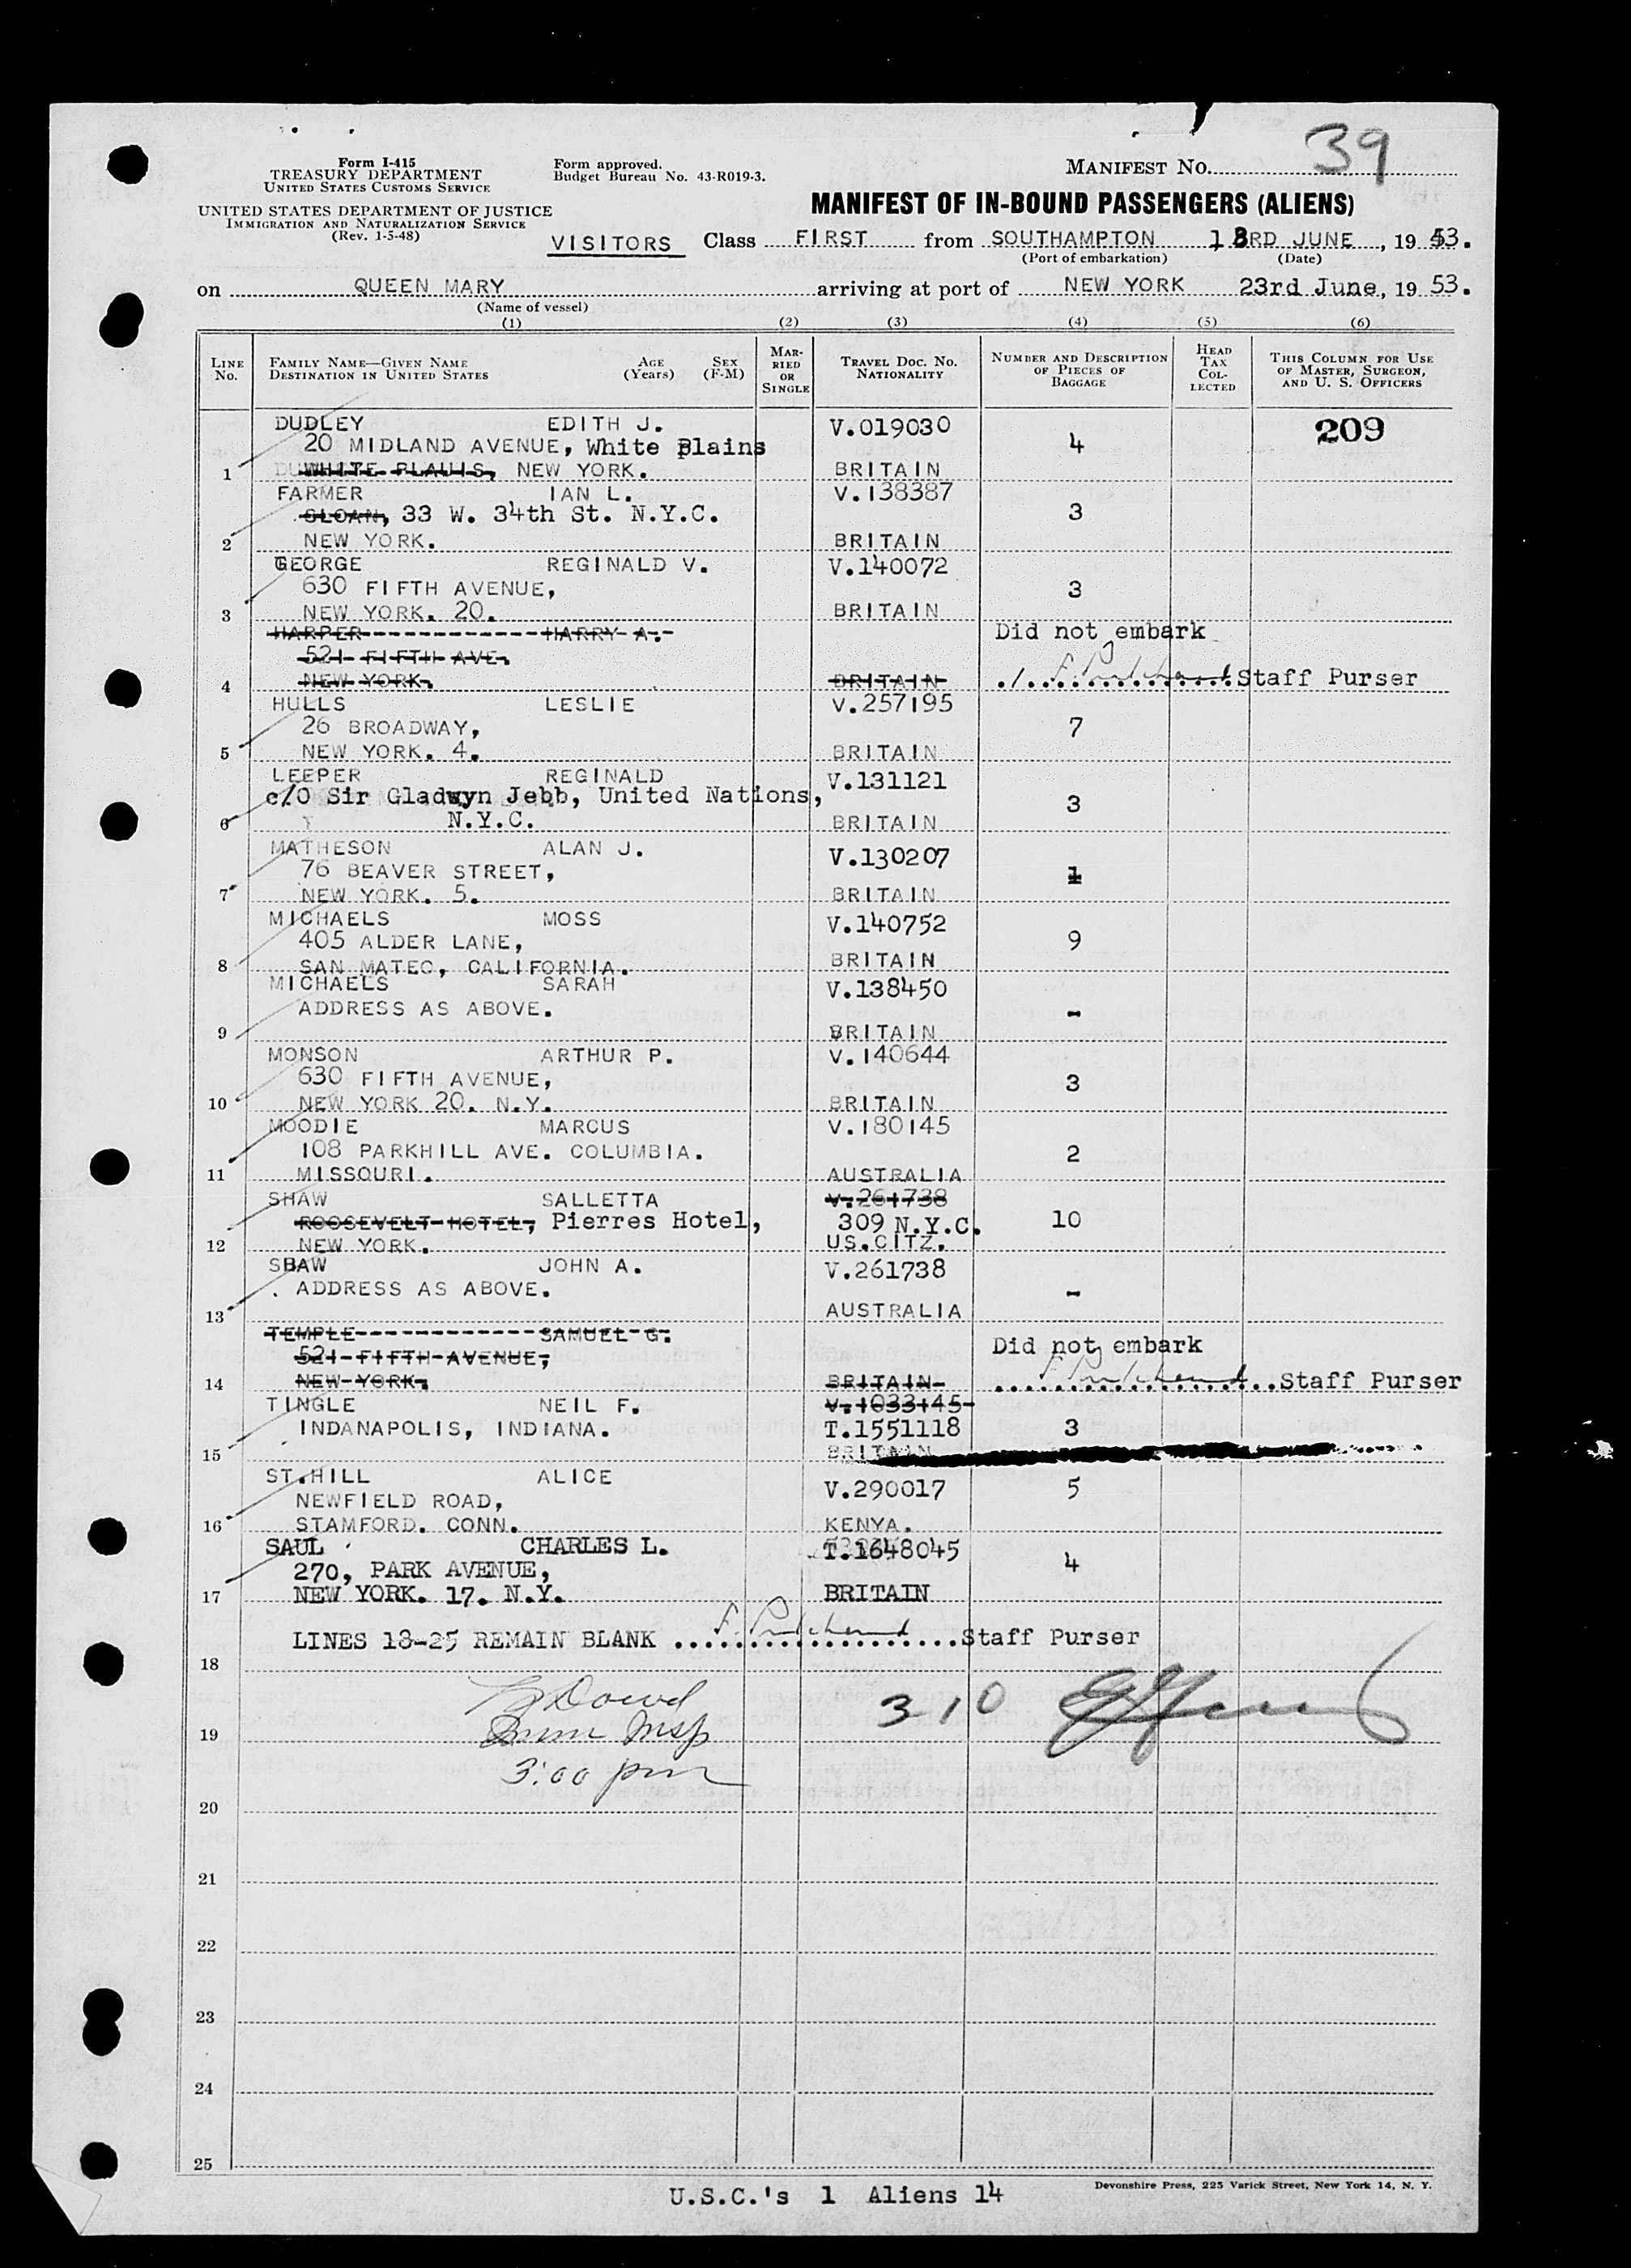 Form I-415
TREASURY DEPARTMENT
UNITED STATES CUSTOMS SERVICE
UNITED STATES DEPARTMENT OF JUSTICE
IMMIGRATION AND NATURALIZATION SERVICE
(Rev. 1-5-48)
Form approved.
Budget Bureau No. 43-R019-3.
MANIFEST NO. 39
MANIFEST OF IN-BOUND PASSENGERS (ALIENS)
VISITORS Class FIRST from SOUTHAMPTON 18RD JUNE, 1953.
(Port of embarkation) (Date)
on QUEEN MARY arriving at port of NEW YORK 23rd June, 19 53.
(Name of vessel)
(1) (2) (3) (4) (5) (6)
LINE NO.
FAMILY NAME—GIVEN NAME AGE SEX
DESTINATION IN UNITED STATES (Years) (F-M)
MARRIED OR SINGLE
TRAVEL DOC. NO. NATIONALITY
NUMBER AND DESCRIPTION OF PIECES OF BAGGAGE
HEAD TAX COLLECTED
THIS COLUMN FOR USE OF MASTER, SURGEON, AND U. S. OFFICERS
DUDLEY EDITH J. V.019030 209
20 MIDLAND AVENUE, White Plains 4
1 WHITE PLAUIS, NEW YORK. BRITAIN
FARMER IAN L. V.138387
SLOAN, 33 W. 34th St. N.Y.C. 3
2 NEW YORK. BRITAIN
GEORGE REGINALD V. V.140072
630 FIFTH AVENUE, 3
3 NEW YORK. 20. BRITAIN
HARPER HARRY A. Did not embark
521 FIFTH AVE.
4 NEW YORK. BRITAIN Staff Purser
HULLS LESLIE V.257195
26 BROADWAY, 7
5 NEW YORK. 4. BRITAIN
LEEPER REGINALD V.131121
c/O Sir Gladwyn Jebb, United Nations, 3
6 N.Y.C. BRITAIN
MATHESON ALAN J. V.130207
76 BEAVER STREET, 1
7 NEW YORK. 5. BRITAIN
MICHAELS MOSS V.140752
405 ALDER LANE, 9
8 SAN MATEO, CALIFORNIA. BRITAIN
MICHAELS SARAH V.138450
ADDRESS AS ABOVE. -
9 BRITAIN
MONSON ARTHUR P. V.140644
630 FIFTH AVENUE, 3
10 NEW YORK 20. N.Y. BRITAIN
MOODIE MARCUS V.180145
108 PARKHILL AVE. COLUMBIA. 2
11 MISSOURI. AUSTRALIA
SHAW SALLETTA V.261738
ROOSEVELT HOTEL, Pierres Hotel, 309 N.Y.C. 10
12 NEW YORK. US.CITZ.
SHAW JOHN A. V.261738
ADDRESS AS ABOVE. -
13 AUSTRALIA
TEMPLE SAMUEL G. Did not embark
521 FIFTH AVENUE,
14 NEW YORK. BRITAIN Staff Purser
TINGLE NEIL F. V.1033145
INDANAPOLIS, INDIANA. T.1551118 3
15 BRITAIN
ST.HILL ALICE V.290017 5
NEWFIELD ROAD,
16 STAMFORD. CONN. KENYA.
SAUL CHARLES L. T.1648045
270, PARK AVENUE, 4
17 NEW YORK. 17. N.Y. BRITAIN
LINES 18-25 REMAIN BLANK Staff Purser
18
Dowd 310
19 Imm Insp
3:00 pm
20
21
22
23
24
25
U.S.C.'s 1 Aliens 14
Devonshire Press, 225 Varick Street, New York 14, N. Y.